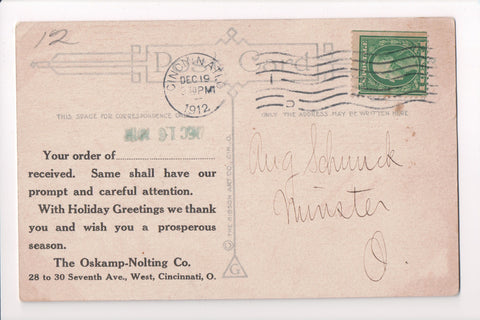 12
Post Card
CINCINNATI, O.
DEC 19
PM
1912
1
THIS SPACE FOR CORRESPONDENCE
ONLY THE ADDRESS MAY BE WRITTEN HERE
DEC 16
Your order of
received. Same shall have our
prompt and careful attention.
With Holiday Greetings we thank
you and wish you a prosperous
season.
The Oskamp-Nolting Co.
28 to 30 Seventh Ave., West, Cincinnati, O.
© THE GIBSON ART CO., CIN, O.
G
Aug Schunck
Minster
O.